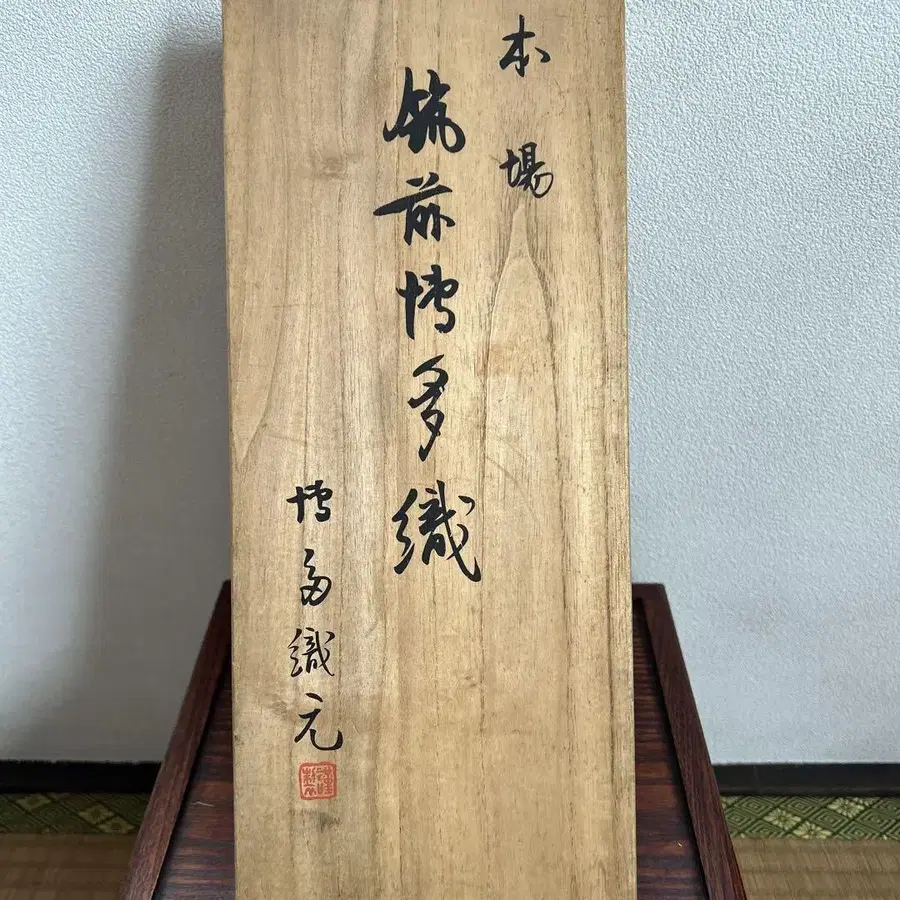 本場
筑前博多織
博多織元
謹製